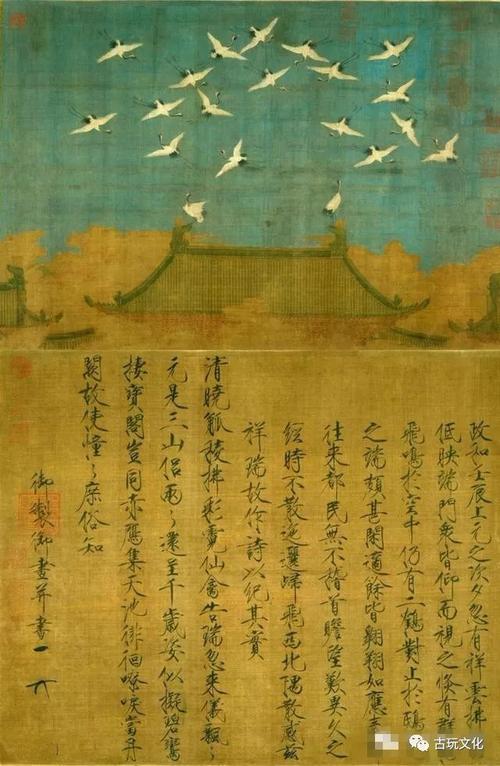 政和壬辰上元之次夕忽有祥雲拂
低映端門衆皆仰而視之倏有群
飛鳴於空中仍有二鶴對止於鴟
之端頗甚閑適餘皆翱翔如應奏
往來都民無不稽首瞻望歎異久之
經時不散迤邐歸飛西北隅散感茲
祥瑞故作詩以紀其實
清曉觚稜拂彩霓仙禽告瑞忽來儀飄〻
元是三山侶兩〻還呈千歲姿似擬碧鸞
棲寶閣豈同赤雁集天池徘徊嘹唳當丹
闕故使憧〻庶俗知
御製御畫并書
古玩文化